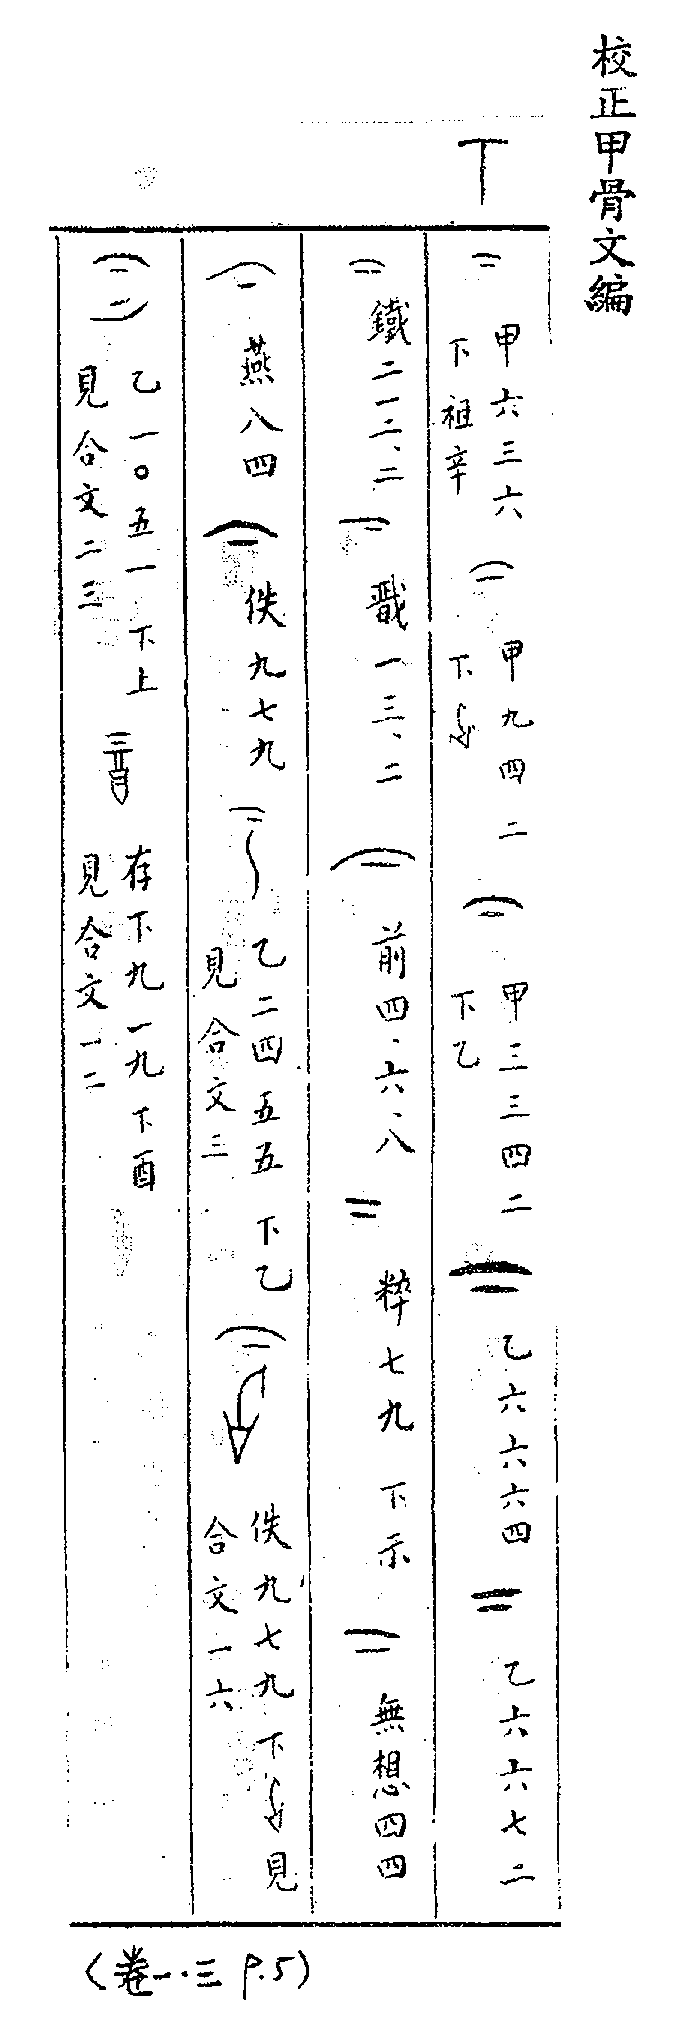 校正甲骨文編
丅
甲六三六
下祖辛
甲九四二
下
甲三三四二
下乙
乙六六六四
乙六六七二
鐵二一二、二
戩一三、二
前四、六、八
粹七九 下示
無想四四
燕八四
佚九七九
乙二四五五 下乙
見合文三
佚九七九下 見
合文一六
乙一〇五一 下上
見合文二三
存下九一九 下酉
見合文一二
(卷一.三 P.5)